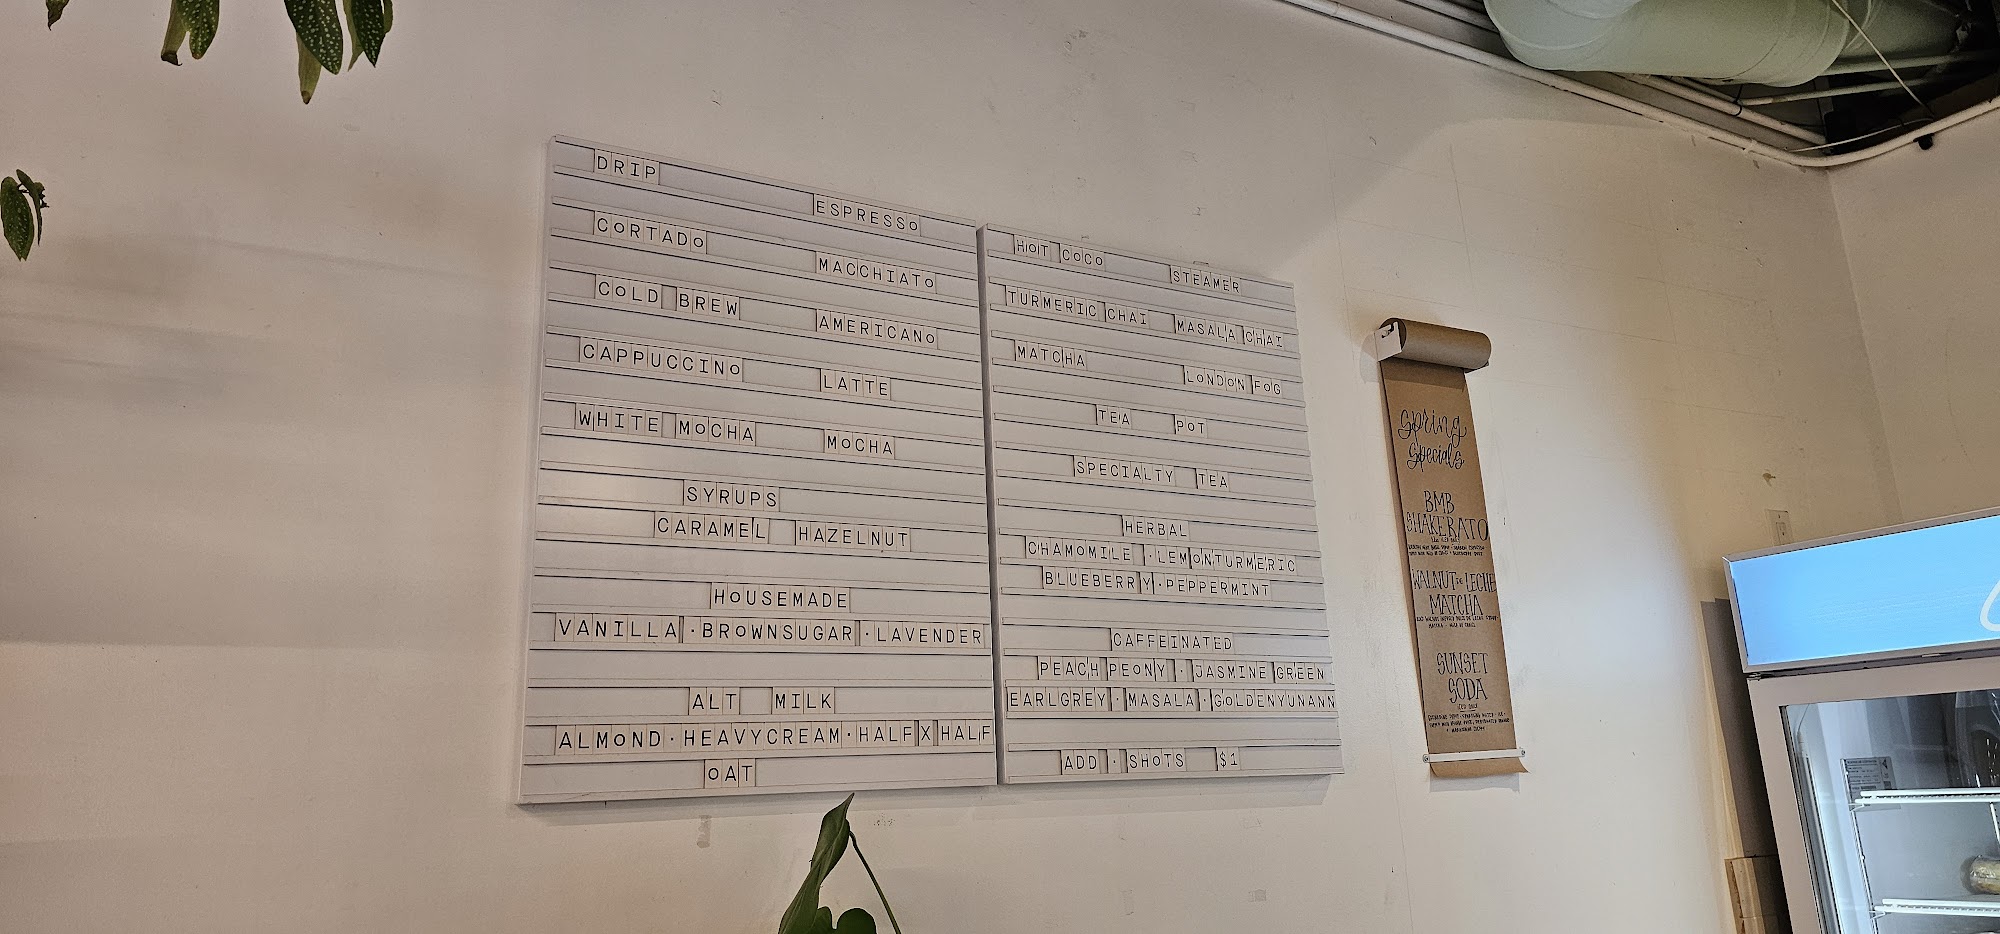 DRIP
ESPRESSO
CORTADO
MACCHIATO
COLD BREW
AMERICANO
CAPPUCCINO
LATTE
WHITE MOCHA
MOCHA
SYRUPS
CARAMEL HAZELNUT
HOUSEMADE
VANILLA·BROWNSUGAR·LAVENDER
ALT MILK
ALMOND·HEAVYCREAM·HALF X HALF
OAT
HOT COCO
STEAMER
TURMERIC CHAI
MASALA CHAI
MATCHA
LONDON FOG
TEA POT
SPECIALTY TEA
HERBAL
CHAMOMILE ·LEMONTURMERIC
BLUEBERRY·PEPPERMINT
CAFFEINATED
PEACH PEONY · JASMINE GREEN
EARLGREY·MASALA·GOLDENYUNANN
ADD · SHOTS $1
Spring
Specials
BMB
SHAKERATO
WALNUT DE LECHE
MATCHA
SUNSET
SODA